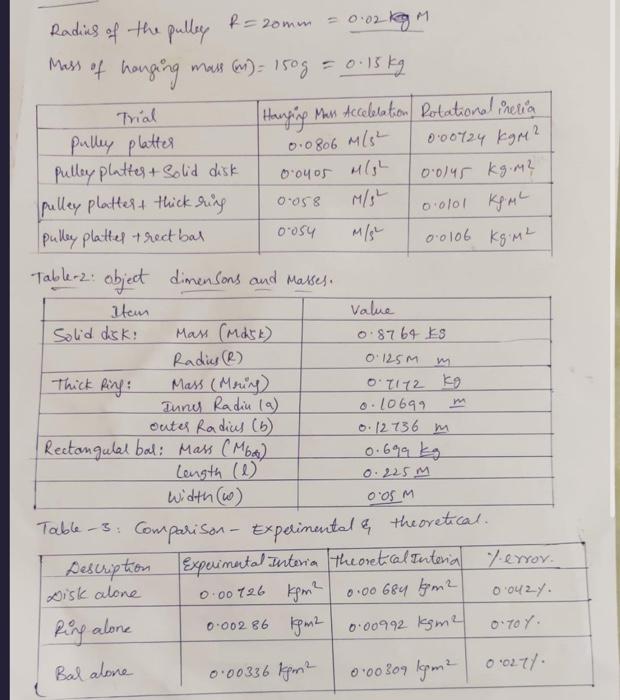 Radius of the pulley R = 20mm = 0.02 kg M
Mass of hanging mass (m) = 150g = 0.15 kg
Trial Hanging Mass Accelelation Rotational ineria
pulley platter 0.0806 M/s² 0.00724 kgM²
pulley platter + Solid disk 0.0405 M/s² 0.0145 kg.M²
pulley platter + thick ring 0.058 M/s² 0.0101 kg.M²
pulley platter + rect bar 0.054 M/s² 0.0106 kg.M²
Table-2: object dimensons and Masses.
Item Value
Solid disk: Mass (Mdisk) 0.8764 kg
Radius (R) 0.125M m
Thick Ring: Mass (Mring) 0.7172 kg
Inner Radiu (a) 0.10699 m
outer Radius (b) 0.12736 m
Rectangular bar: Mass (Mbar) 0.699 kg
length (l) 0.225 M
Width (w) 0.05 M
Table - 3: Comparison - Experimental & theoretical.
Description Experimental Interia theoretical Interia % error.
Disk alone 0.00726 kgm² 0.00684 kgm² 0.042%.
Ring alone 0.00286 kgm² 0.00992 kgm² 0.70%.
Bar alone 0.00336 kgm² 0.00309 kgm² 0.027%.